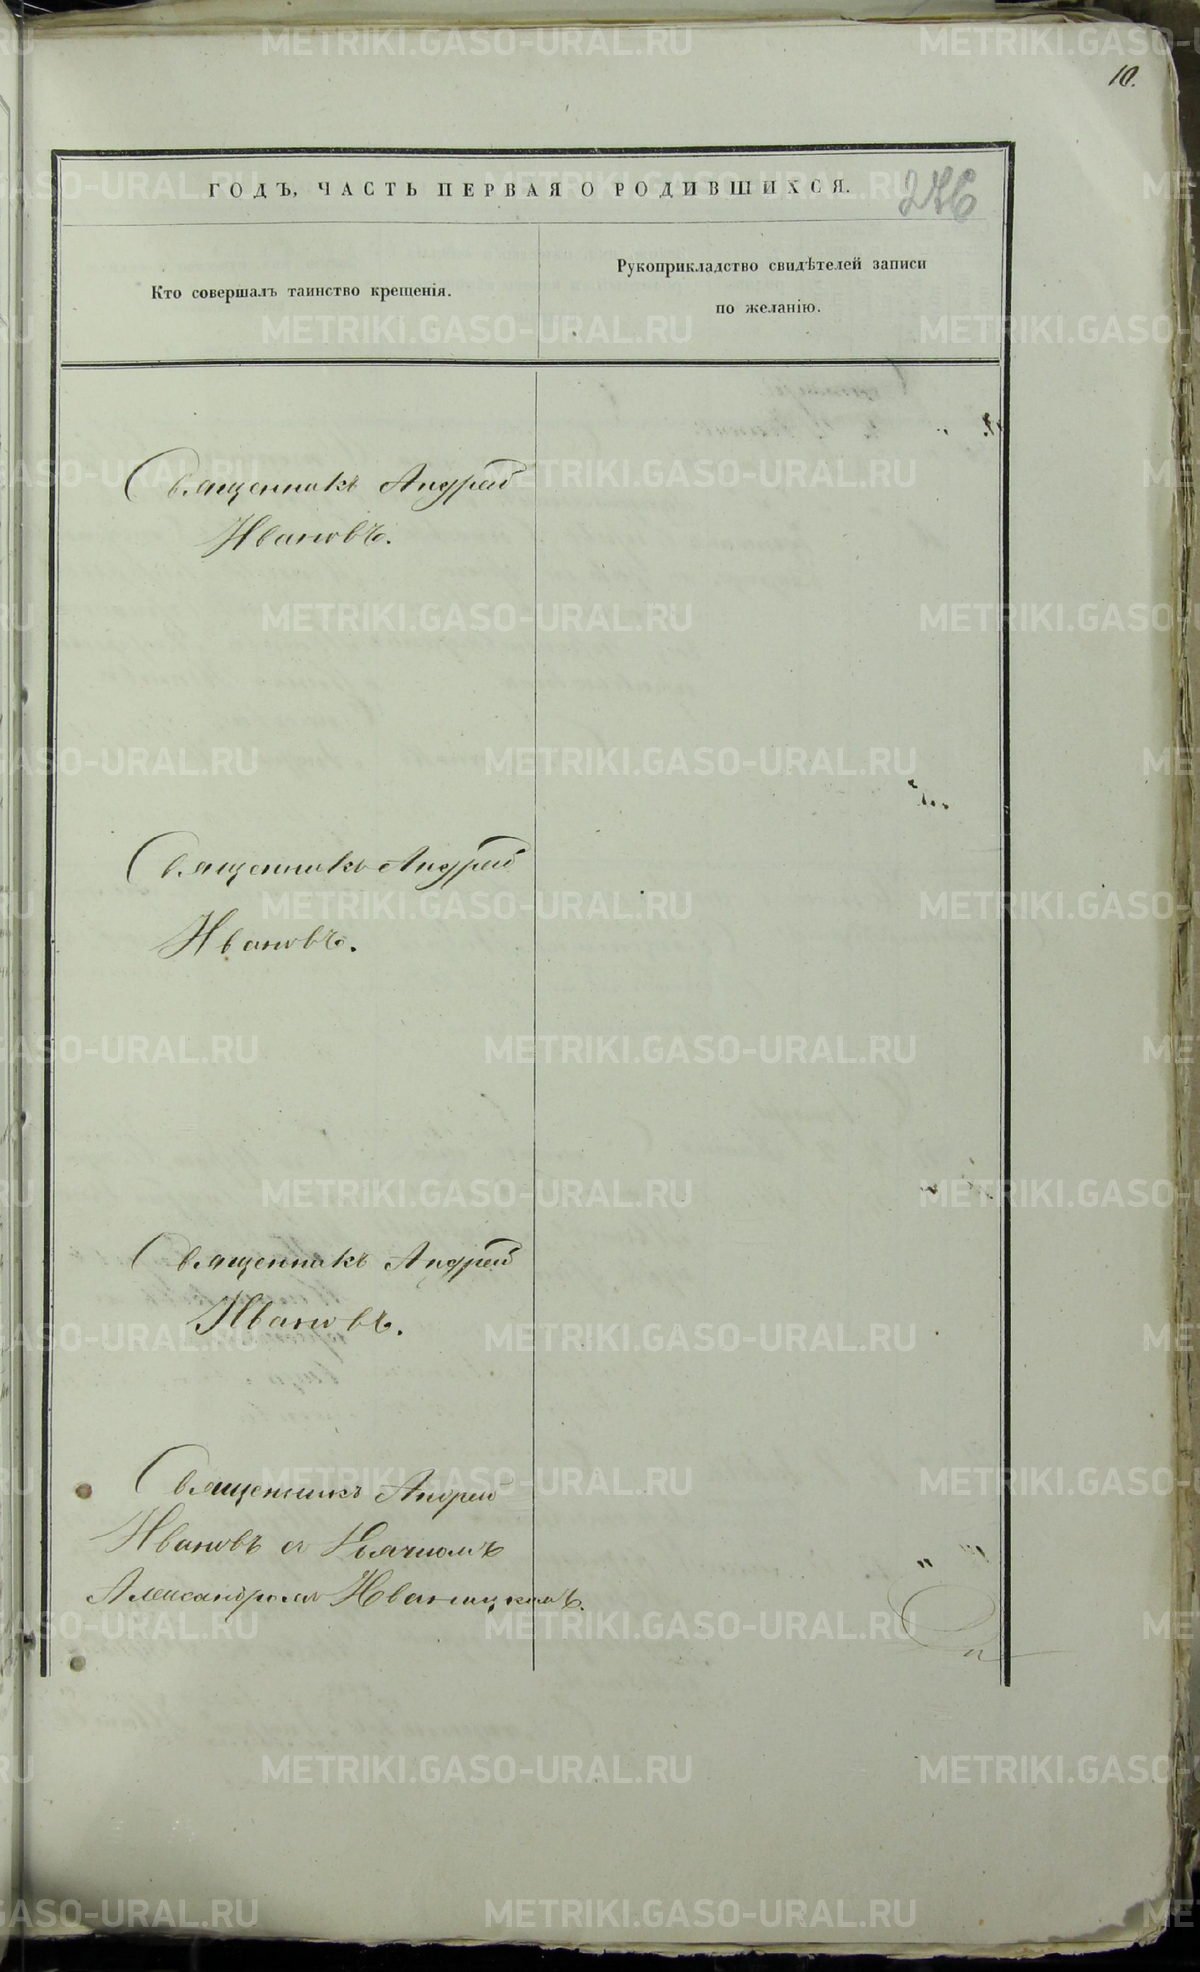 10.
ГОДЪ, ЧАСТЬ ПЕРВАЯ О РОДИВШИХСЯ.
276
Кто совершалъ таинство крещенія.
Рукоприкладство свидѣтелей записи
по желанію.
Священникъ Андрей
Ивановъ.
Священникъ Андрей
Ивановъ.
Священникъ Андрей
Ивановъ.
Священникъ Андрей
Ивановъ съ Дьячкомъ
Александромъ
METRIKI.GASO-URAL.RU